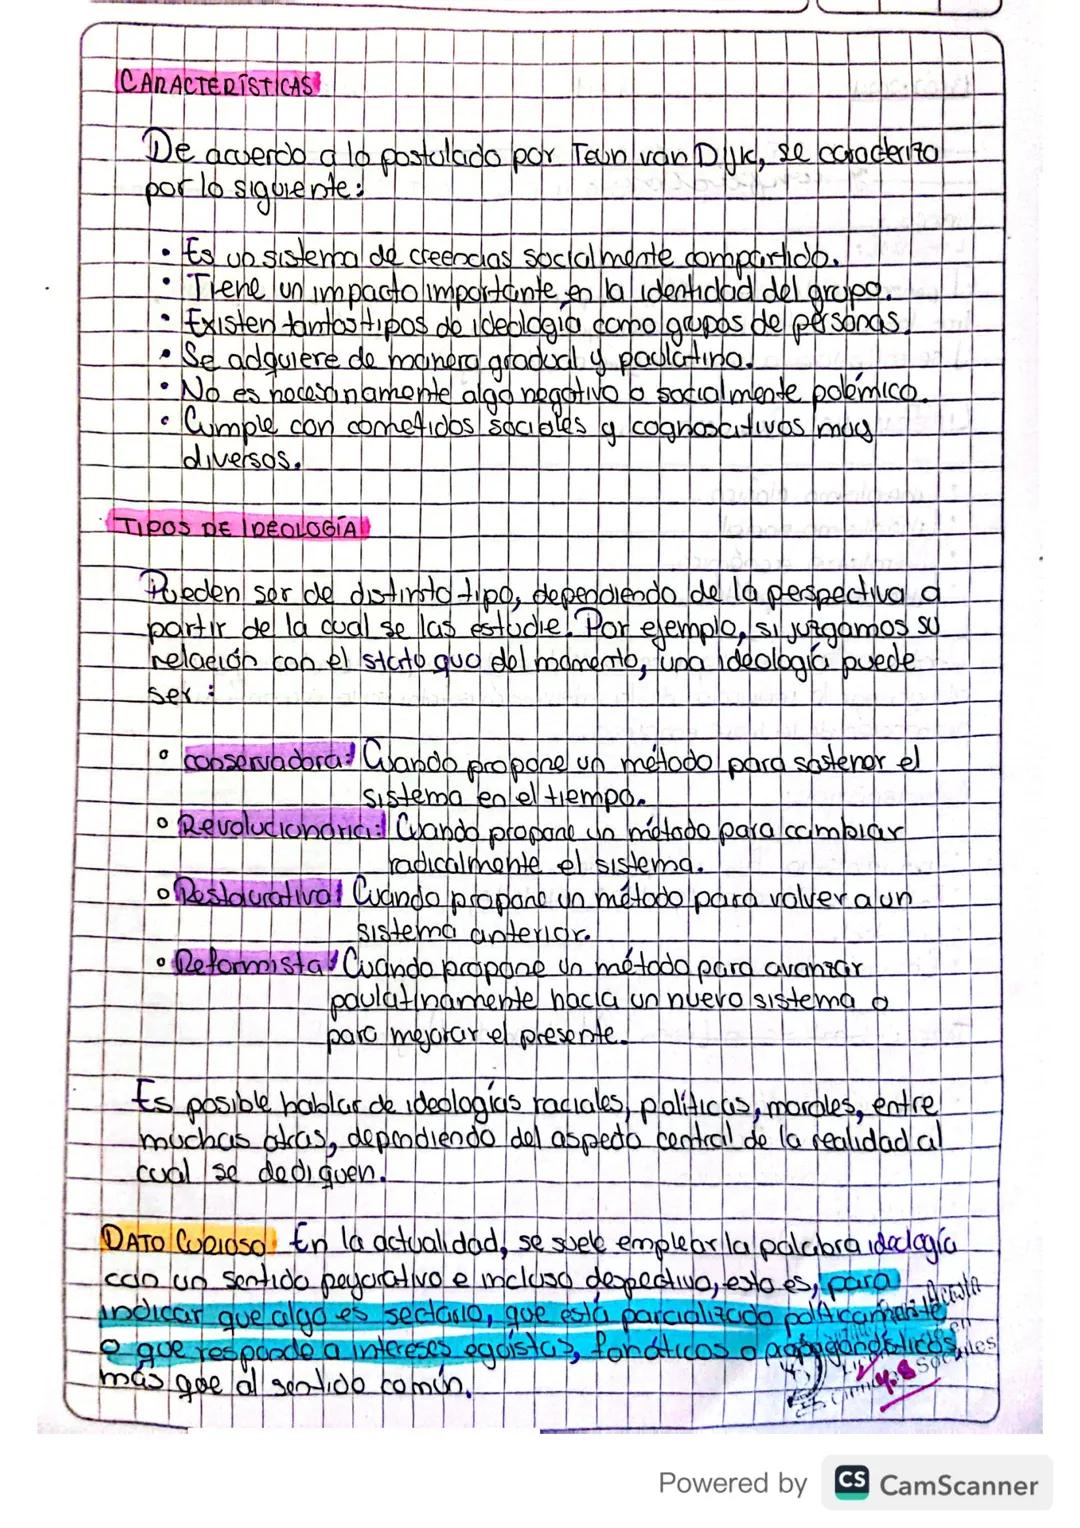 CARACTERÍSTICAS
De acuerdo a lo postulado por Teun van Dijk, se caracteriza
por lo siguiente:
• Es un sistema de creencias socialmente compartido.
• Tiene un impacto importante en la identidad del grupo.
• Existen tantos tipos de ideología como grupos de personas.
• Se adquiere de manera gradual y paulatina.
• No es necesariamente algo negativo o socialmente polémico.
• Cumple con cometidos sociales y cognoscitivos muy
diversos.
TIPOS DE IDEOLOGÍA
Pueden ser de distinto tipo, dependiendo de la perspectiva a
partir de la cual se las estudie. Por ejemplo, si juzgamos su
relación con el statu quo del momento, una ideología puede
ser:
° conservadora: Cuando propone un método para sostener el
sistema en el tiempo.
° Revolucionaria: Cuando propone un método para cambiar
radicalmente el sistema.
° Restaurativa: Cuando propone un método para volver a un
sistema anterior.
° Reformista: Cuando propone un método para avanzar
paulatinamente hacia un nuevo sistema o
para mejorar el presente.
Es posible hablar de ideologías raciales, políticas, morales, entre
muchas otras, dependiendo del aspecto central de la realidad al
cual se dediquen.
DATO CURIOSO: En la actualidad, se suele emplear la palabra ideología
con un sentido peyorativo e incluso despectivo, esto es, para
indicar que algo es sectario, que está parcializado políticamente
o que responde a intereses egoístas, fanáticos o propagandísticos,
más que al sentido común.
en
Sociales
4.8
Powered by CS CamScanner